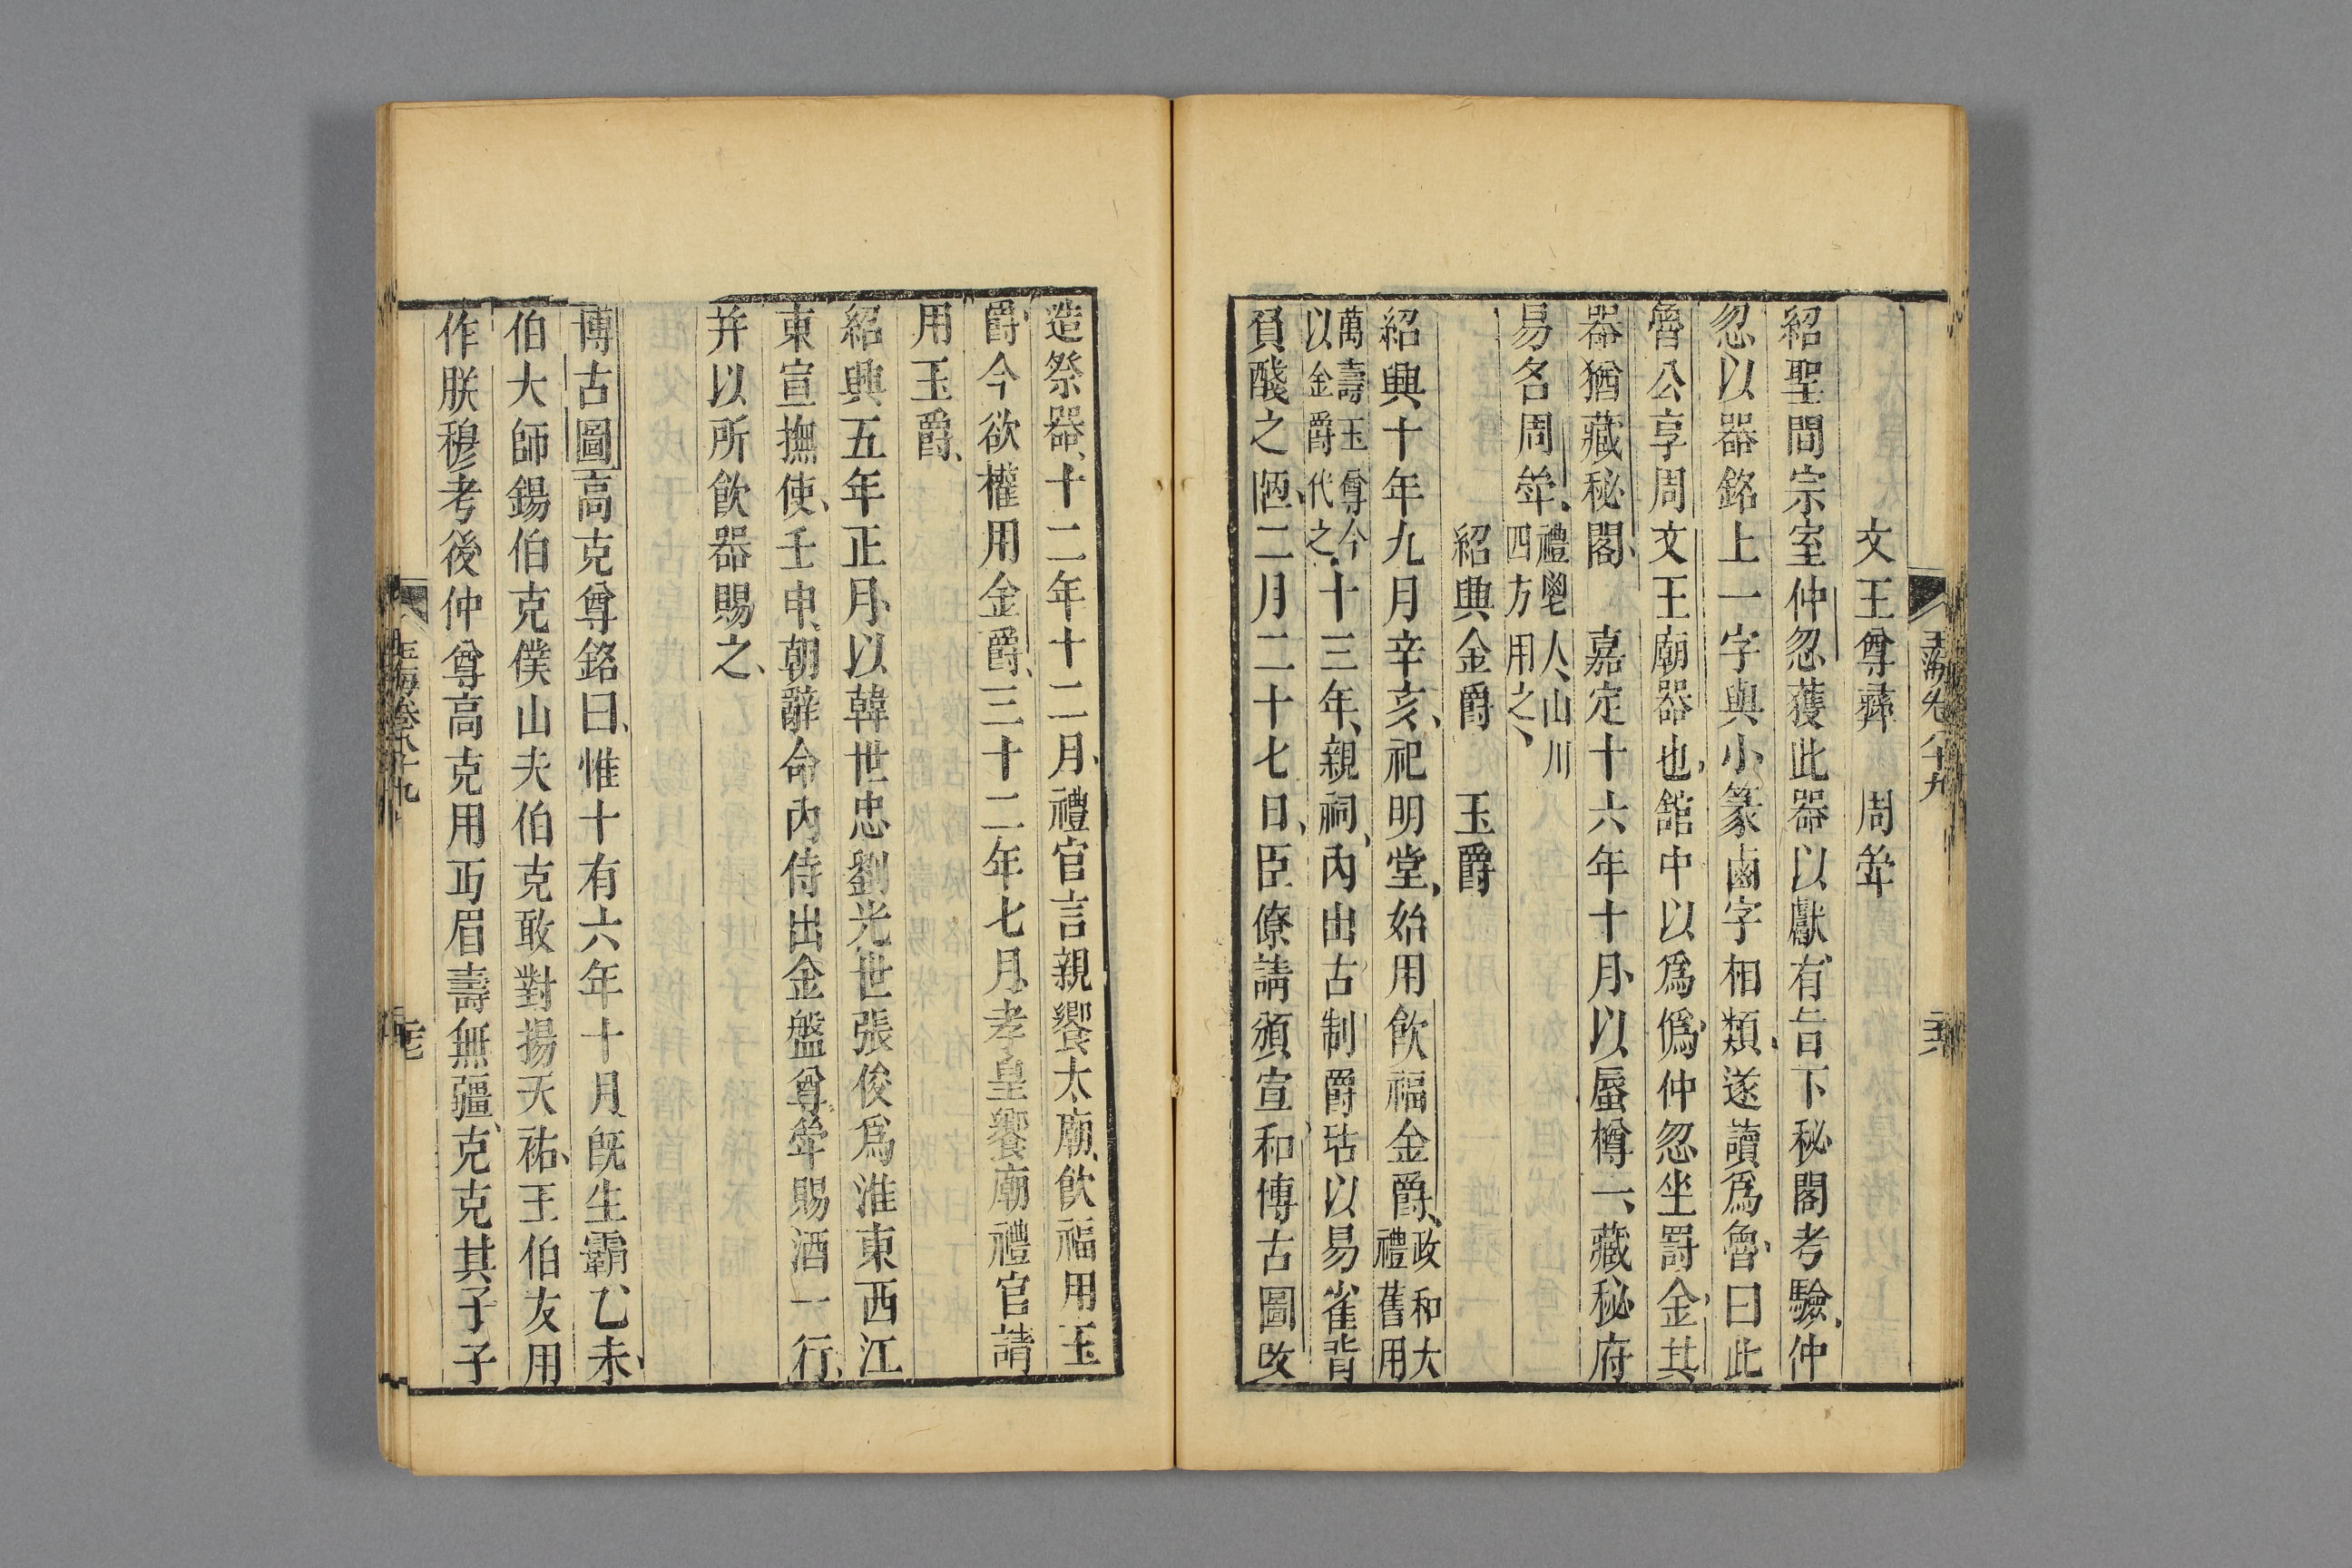 玉海卷八十九
文王尊彝 周斝
紹聖間宗室仲忽獲此器以獻有旨下秘閣考驗仲
忽以器銘上一字與小篆鹵字相類遂讀爲魯曰此
魯公享周文王廟器也舘中以爲僞仲忽坐罰金其
器猶藏秘閣 嘉定十六年十月以蜃樽一藏秘府
易名周斝禮鬯人山川四方用之
紹興金爵 玉爵
紹興十年九月辛亥祀明堂始用飲福金爵政和大禮舊用
萬壽玉尊今以金爵代之十三年親祠內出古制爵坫以易雀背
負醆之陋二月二十七日臣僚請頒宣和博古圖改
造祭器十二年十二月禮官言親饗太廟飲福用玉
爵今欲權用金爵三十二年七月孝皇饗廟禮官請
用玉爵
紹興五年正月以韓世忠劉光世張俊爲淮東西江
東宣撫使壬申朝辭命內侍出金盤尊斝賜酒一行
并以所飲器賜之
博古圖高克尊銘曰惟十有六年十月旣生霸乙未
伯大師錫伯克僕山夫伯克敢對揚天祐王伯友用
作朕穆考後仲尊高克用丏眉壽無疆克克其子子
玉海卷八十九